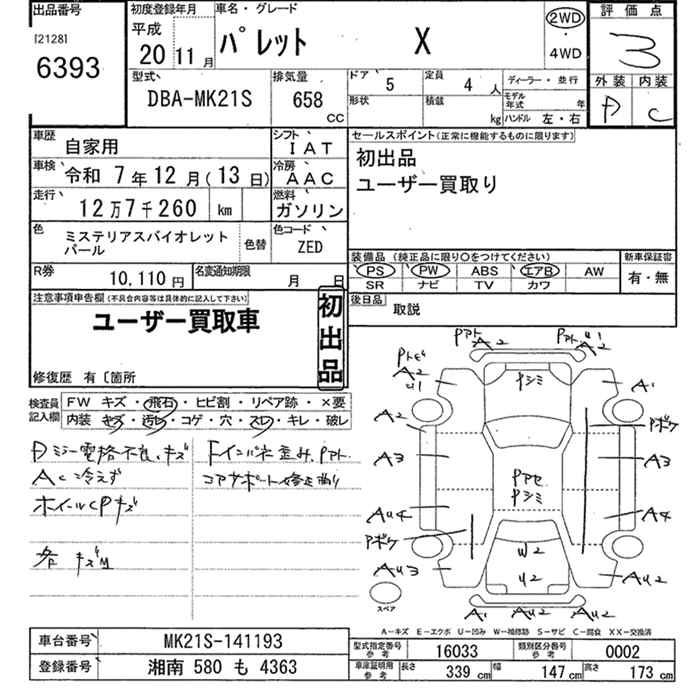 出品番号
[2128]
6393
初度登録年月
平成
20 11 月
車名・グレード
パレット X
2WD
・
4WD
評価点
3
外装 内装
D C
型式
DBA-MK21S
排気量
658
CC
ドア 5
定員 4 人
形状
積載 kg
ディーラー・並行
モデル年式 年
ハンドル 左・右
車歴
自家用
シフト
IAT
車検
令和 7年 12月(13日)
冷房
AAC
走行
12万7千260 km
燃料
ガソリン
色
ミステリアスバイオレット
パール
色替
色コード
ZED
R券
10,110 円
名変通知期限
月 日
セールスポイント(正常に機能するものに限ります)
初出品
ユーザー買取り
装備品 (純正品に限り○をつけてください)
PS PW ABS エアB AW
SR ナビ TV カワ
新車保証書
有・無
後日品
取説
注意事項申告欄(不具合内容等は具体的に記入して下さい)
ユーザー買取車
初出品
修復歴 有〔箇所
検査員
記入欄
FW キズ・飛石・ヒビ割・リペア跡・×要
内装 キズ・汚レ・コゲ・穴・スレ・キレ・破レ
Dミラー電格不良、キズ
AC冷えず
ホイールCPキズ
各キズM
Fインパネ歪み、Pアト
コアサポート修正曲り
Pアト A2
Pアト U1
A2
Pトビ
A2
U1
Pシミ
A1
A2
Pボケ
A3
A3
Pアセ
Pシミ
AU4
A4
Pボケ
W2
AU3
U2
AU2
スペア
A1 AU2 AU2
A-キズ E-エクボ U-凹み W-補修跡 S-サビ C-腐食 XX-交換済
車台番号
MK21S-141193
登録番号
湘南 580 も 4363
型式指定番号
参考
16033
類別区分番号
参考
0002
車庫証明用
参考
長さ 339 cm
幅 147 cm
高さ 173 cm